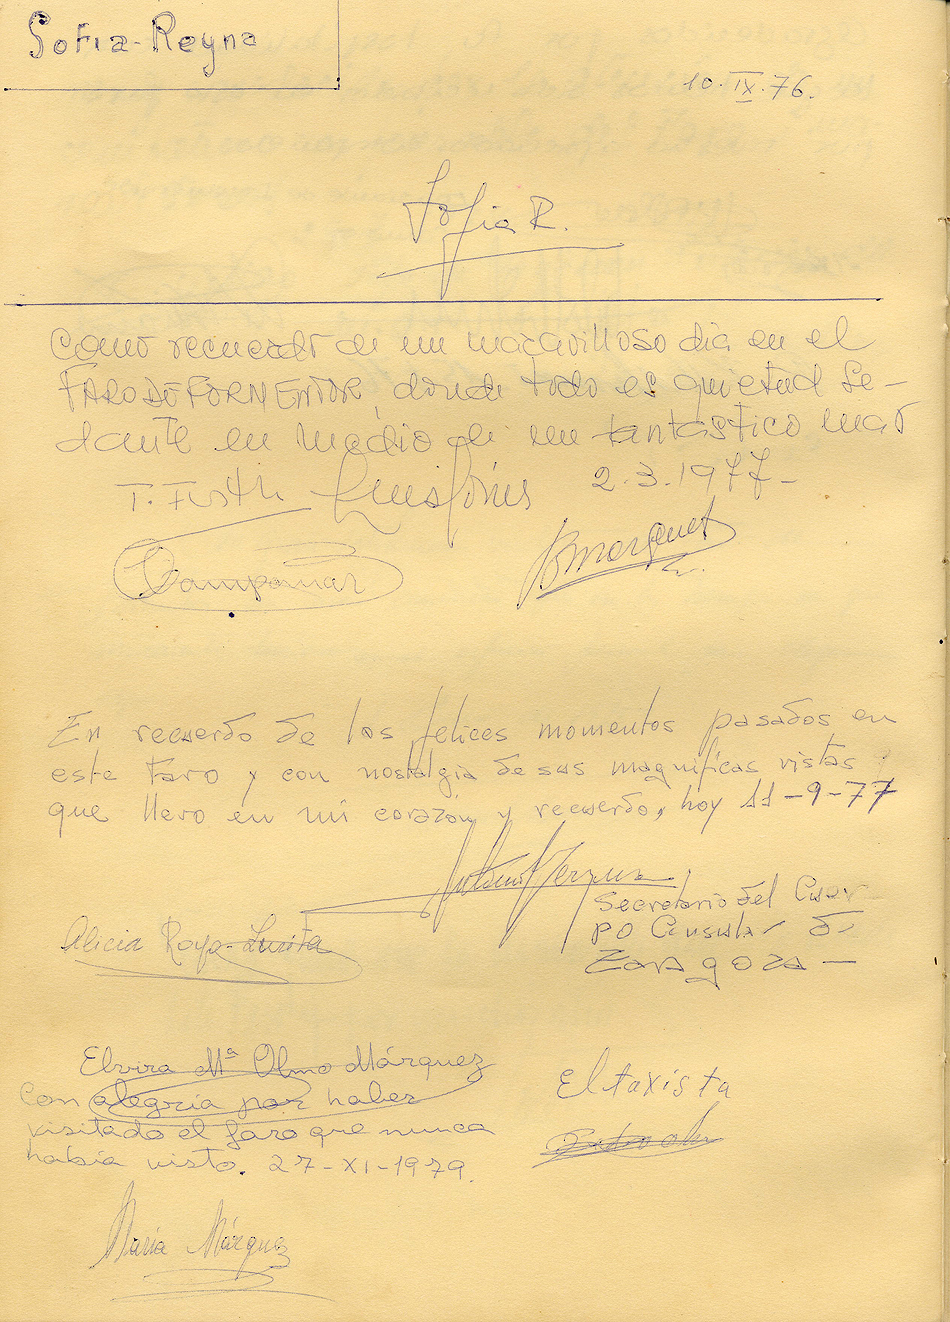 Sofia-Reyna
10.IX.76.
Sofia R.
Como recuerdo de un maravilloso dia en el
FARO DE FORMENTOR, donde todo es quietud se-
dante en medio de un fantastico mar
T. Fusth 2.3.1977-
Campomar
B Marquet
En recuerdo de los felices momentos pasados en
este Faro y con nostalgia de sus magnificas vistas
que llevo en mi corazón y recuerdo, hoy 11-9-77
Secretario del Cuer-
po Consular de
Zaragoza-
Alicia Royo-
Elvira Mª Olmo Márquez
con alegria por haber
visitado el faro que nunca
había visto. 27-XI-1979.
El taxista
Maria Márquez